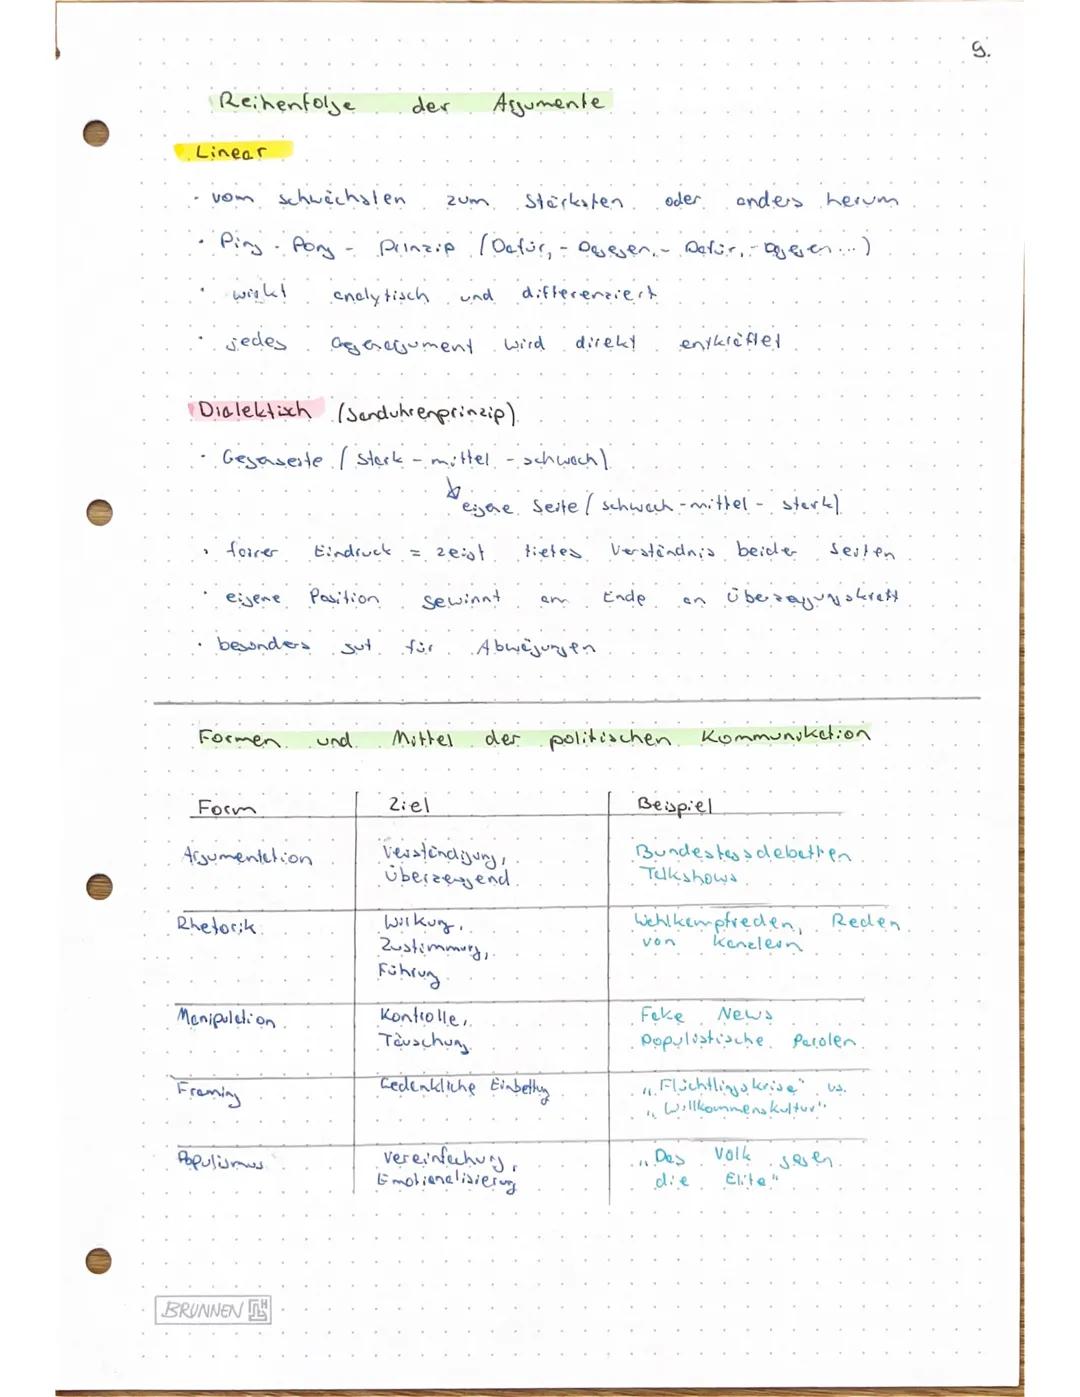 9.
Reihenfolge der Argumente
Linear
· vom schwächsten zum Stärksten oder anders herum
· Ping - Pong - Prinzip (Dafür, - Dagegen, - Dafür, - Dagegen...)
· wirkt analytisch und differenziert
· jedes Gegenargument wird direkt entkräftet
Dialektisch (Sanduhrenprinzip)
· Gegenseite (stark - mittel - schwach)
eigene Seite (schwach - mittel - stark)
· fairer Eindruck = zeigt tiefes Verständnis beider Seiten
· eigene Position gewinnt am Ende an Überzeugungskraft
· besonders gut für Abwägungen
Formen und Mittel der politischen Kommunikation
Form Ziel Beispiel
Argumentation Verständigung, Bundestagsdebatten
überzeugend Talkshows
Rhetorik Wirkung, Wahlkampfreden, Reden
Zustimmung, von Kanzlern
Führung
Manipulation Kontrolle, Fake News
Täuschung Populistische Parolen
Framing Gedankliche Einbettung „Flüchtlingskrise" vs.
„Willkommenskultur"
Populismus Vereinfachung, „Das Volk gegen
Emotionalisierung die Elite"
BRUNNEN